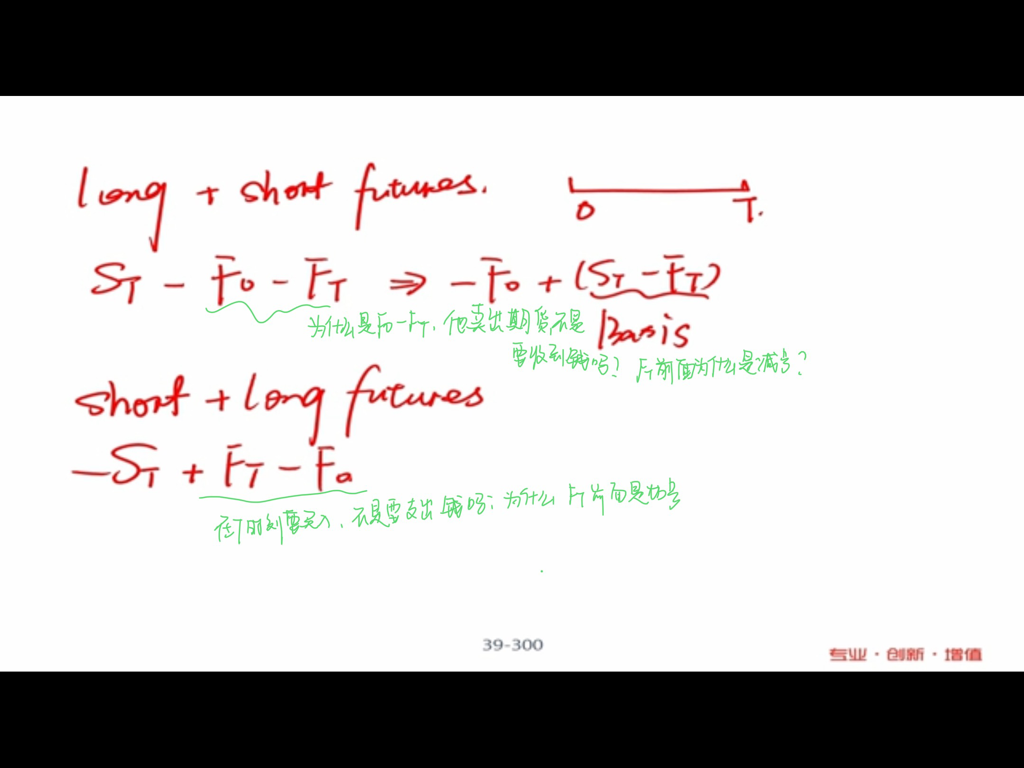 long + short futures.
0 T.
S_T - F_0 - F_T ⇒ -F_0 + (S_T - F_T)
为什么是F0-FT,他卖出期货不是
Basis
要收到钱吗? FT前面为什么是减号?
short + long futures
-S_T + F_T - F_0
在T时刻要买入,不是要支出钱吗;为什么FT前面是加号
39-300
专业·创新·增值